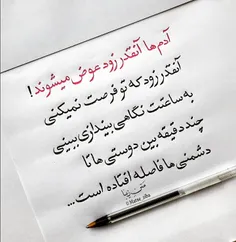 آدم ها آنقدر زود عوض میشوند!
آنقدر زود که تو فرصت نمیکنی
به ساعتت نگاهی بیندازی ببینی
چند دقیقه بین دوستی ها تا
دشمنی ها فاصله افتاده است...
متن زیبا